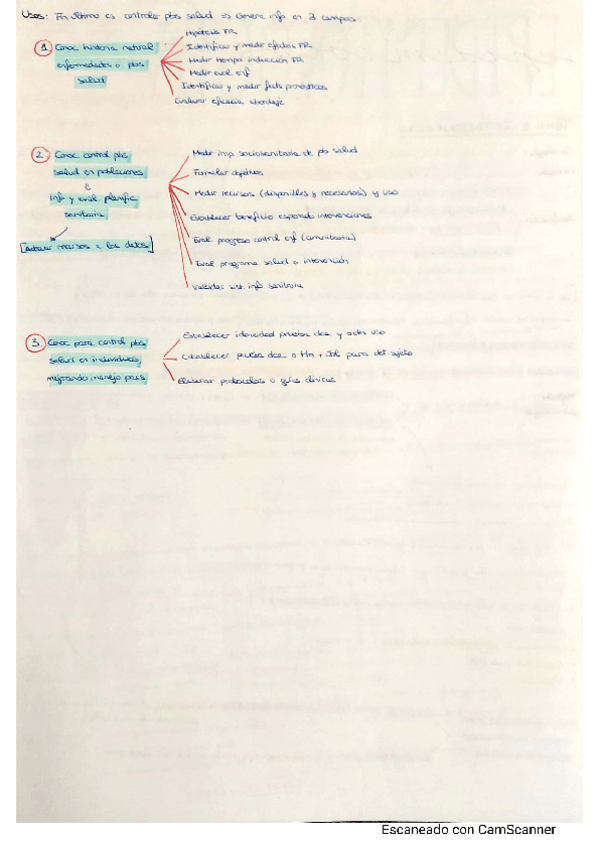 Usos: Fin último es controlar pbs salud ⇒ Genera info en 3 campos:
① Conoc historia natural
enfermedades o pbs
salud
Hipótesis FR
Identificar y medir efectos FR
Medir tiempo inducción FR
Medir evol. enf
Identificar y medir facts pronósticos
Evaluar eficacia abordaje
② Conoc control pbs
salud en poblaciones
info y eval. planific.
sanitaria
[Adecuar recursos a los datos]
Medir imp. sociosanitaria de pb salud
Formular objetivos
Medir recursos (disponibles y necesarios) y uso
Establecer beneficio esperado intervenciones
Eval. progreso control enf (comunitaria)
Eval. programa salud o intervención
Validar sist. info sanitaria
③ Conoc para control pbs
salud en individuos,
mejorando manejo
Establecer idoneidad pruebas dca y uso
Establecer pruebas dca o para sujeto
Elaborar protocolos o guías clínicas
Escaneado con CamScanner